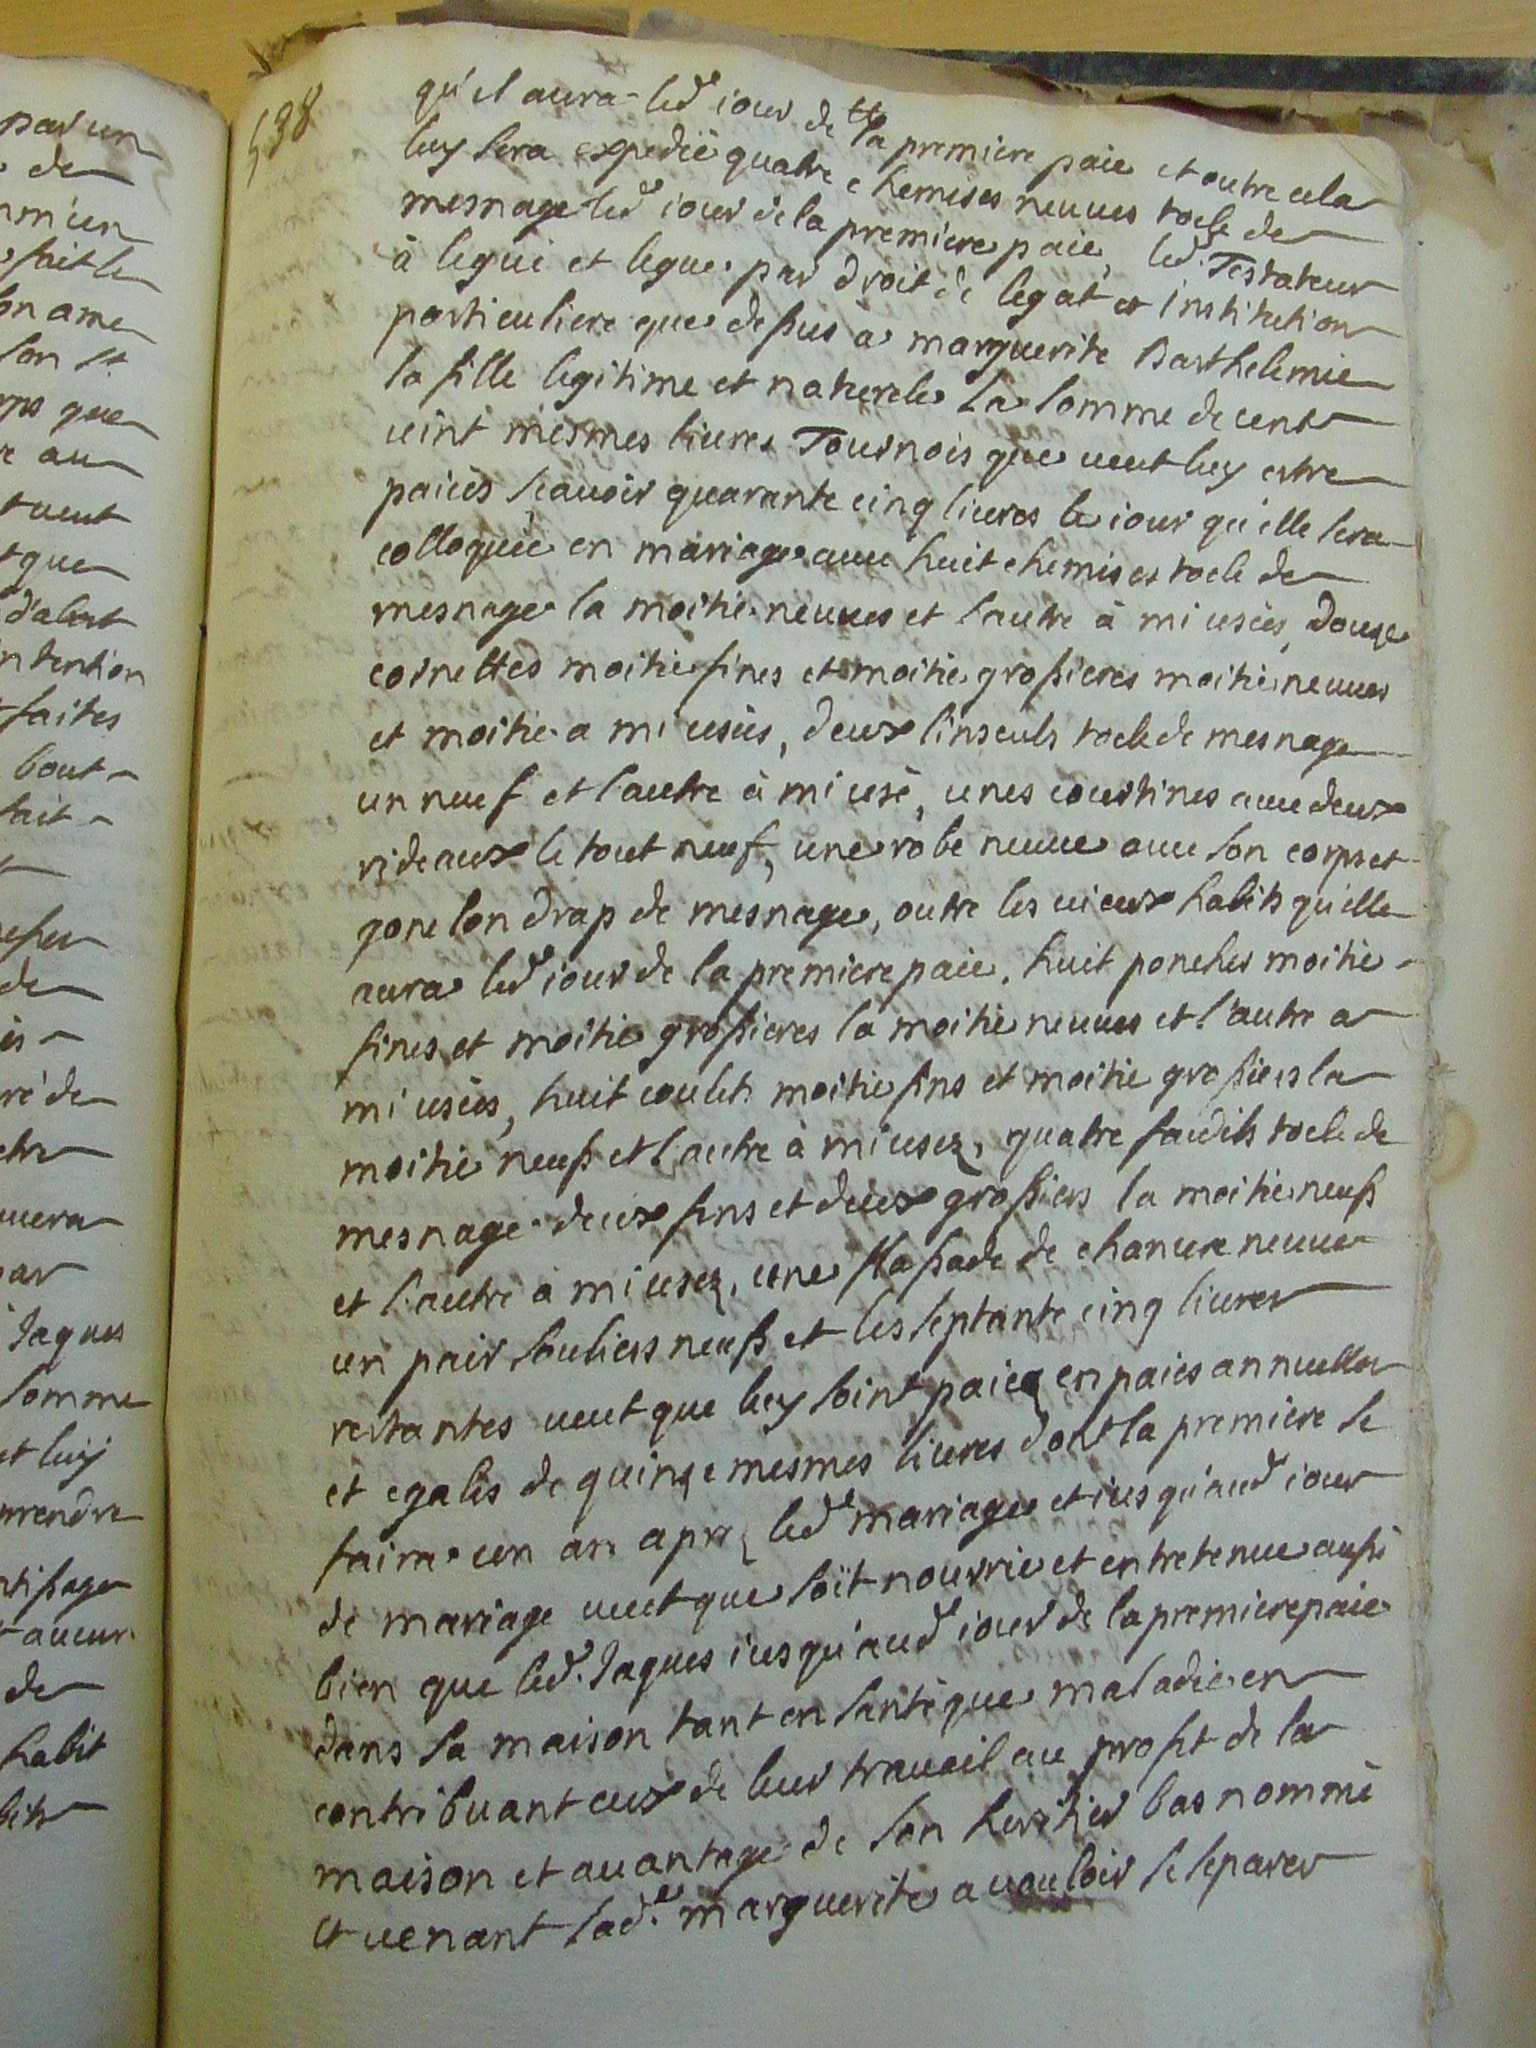 538
qu'il aura led iour de la premiere paie et outre cela
luy sera expedié quatre chemises neuues toele de
mesnage led iour de la premiere paie, led. Testateur
à legué et legue par droit de legat et institution
particuliere que dessus a marguerite Barthelemie
sa fille legitime et naturele la somme de cent
vint mesmes liures Tournois que ueut luy estre
paiées scauoir quarante cinq liures le iour qu'elle sera
colloquée en mariage auec huit chemises toele de
mesnage la moitié neuues et l'autre à mi usées, douze
cornettes moitié fines et moitié grossieres moitié neuues
et moitié a mi usées, deux linseuls toele de mesnage
un neuf et l'autre à mi usé, unes courtines auec deux
rideaux le tout neuf, une robe neuue auec son corps et
gonelon drap de mesnage, outre les uieux habits qu'elle
aura led iour de la premiere paie, huit ponches moitié
fines et moitié grossieres la moitié neuues et l'autre a
mi usées, huit coulets moitié fins et moitié grossiers la
moitié neufs et l'autre à mi usez, quatre faudils toele de
mesnage deux fins et deux grossiers la moitié neufs
et l'autre à mi usez, une flassade de chanure neuue
un pair souliers neufs et les septante cinq liures
restantes ueut que luy soint paiez en paies annuelles
et egales de quinze mesmes liures dont la premiere se
faira un an aprez led mariage et iusqu'aud iour
de mariage ueut que soit nourrie et entretenue aussi
bien que led. Jaques iusqu'aud iour de la premiere paie
dans sa maison tant en santé que maladie en
contribuant eux de leur trauail au profit de la
maison et auantage de son heritier bas nommé
et uenant lad.e marguerite a uouloir se separer
par un
de
fait le
son ame
son
que
au
ueut
que
intention
faites
bout
fait
de
ré de
Jaques
somme
et luy
prendre
aucun
de
habit